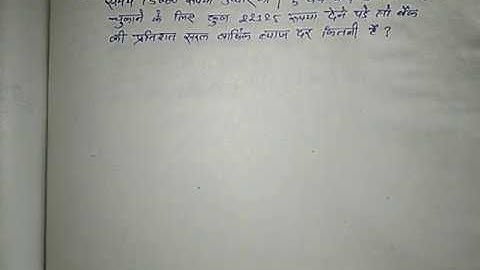 15000 रूपया
चुकाने के लिए कुल 22125 रूपया देने पड़े तो बैंक
की प्रतिशत सरल वार्षिक ब्याज दर कितनी है ?